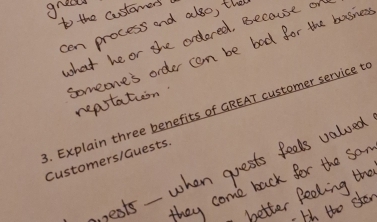 to the customers
can process and also, then
what he or she ordered. Because one
someone's order can be bad for the business
reputation.
3. Explain three benefits of GREAT customer service to
Customers/Guests.
guests – when guests feels valued
they come back for the same
better feeling
the